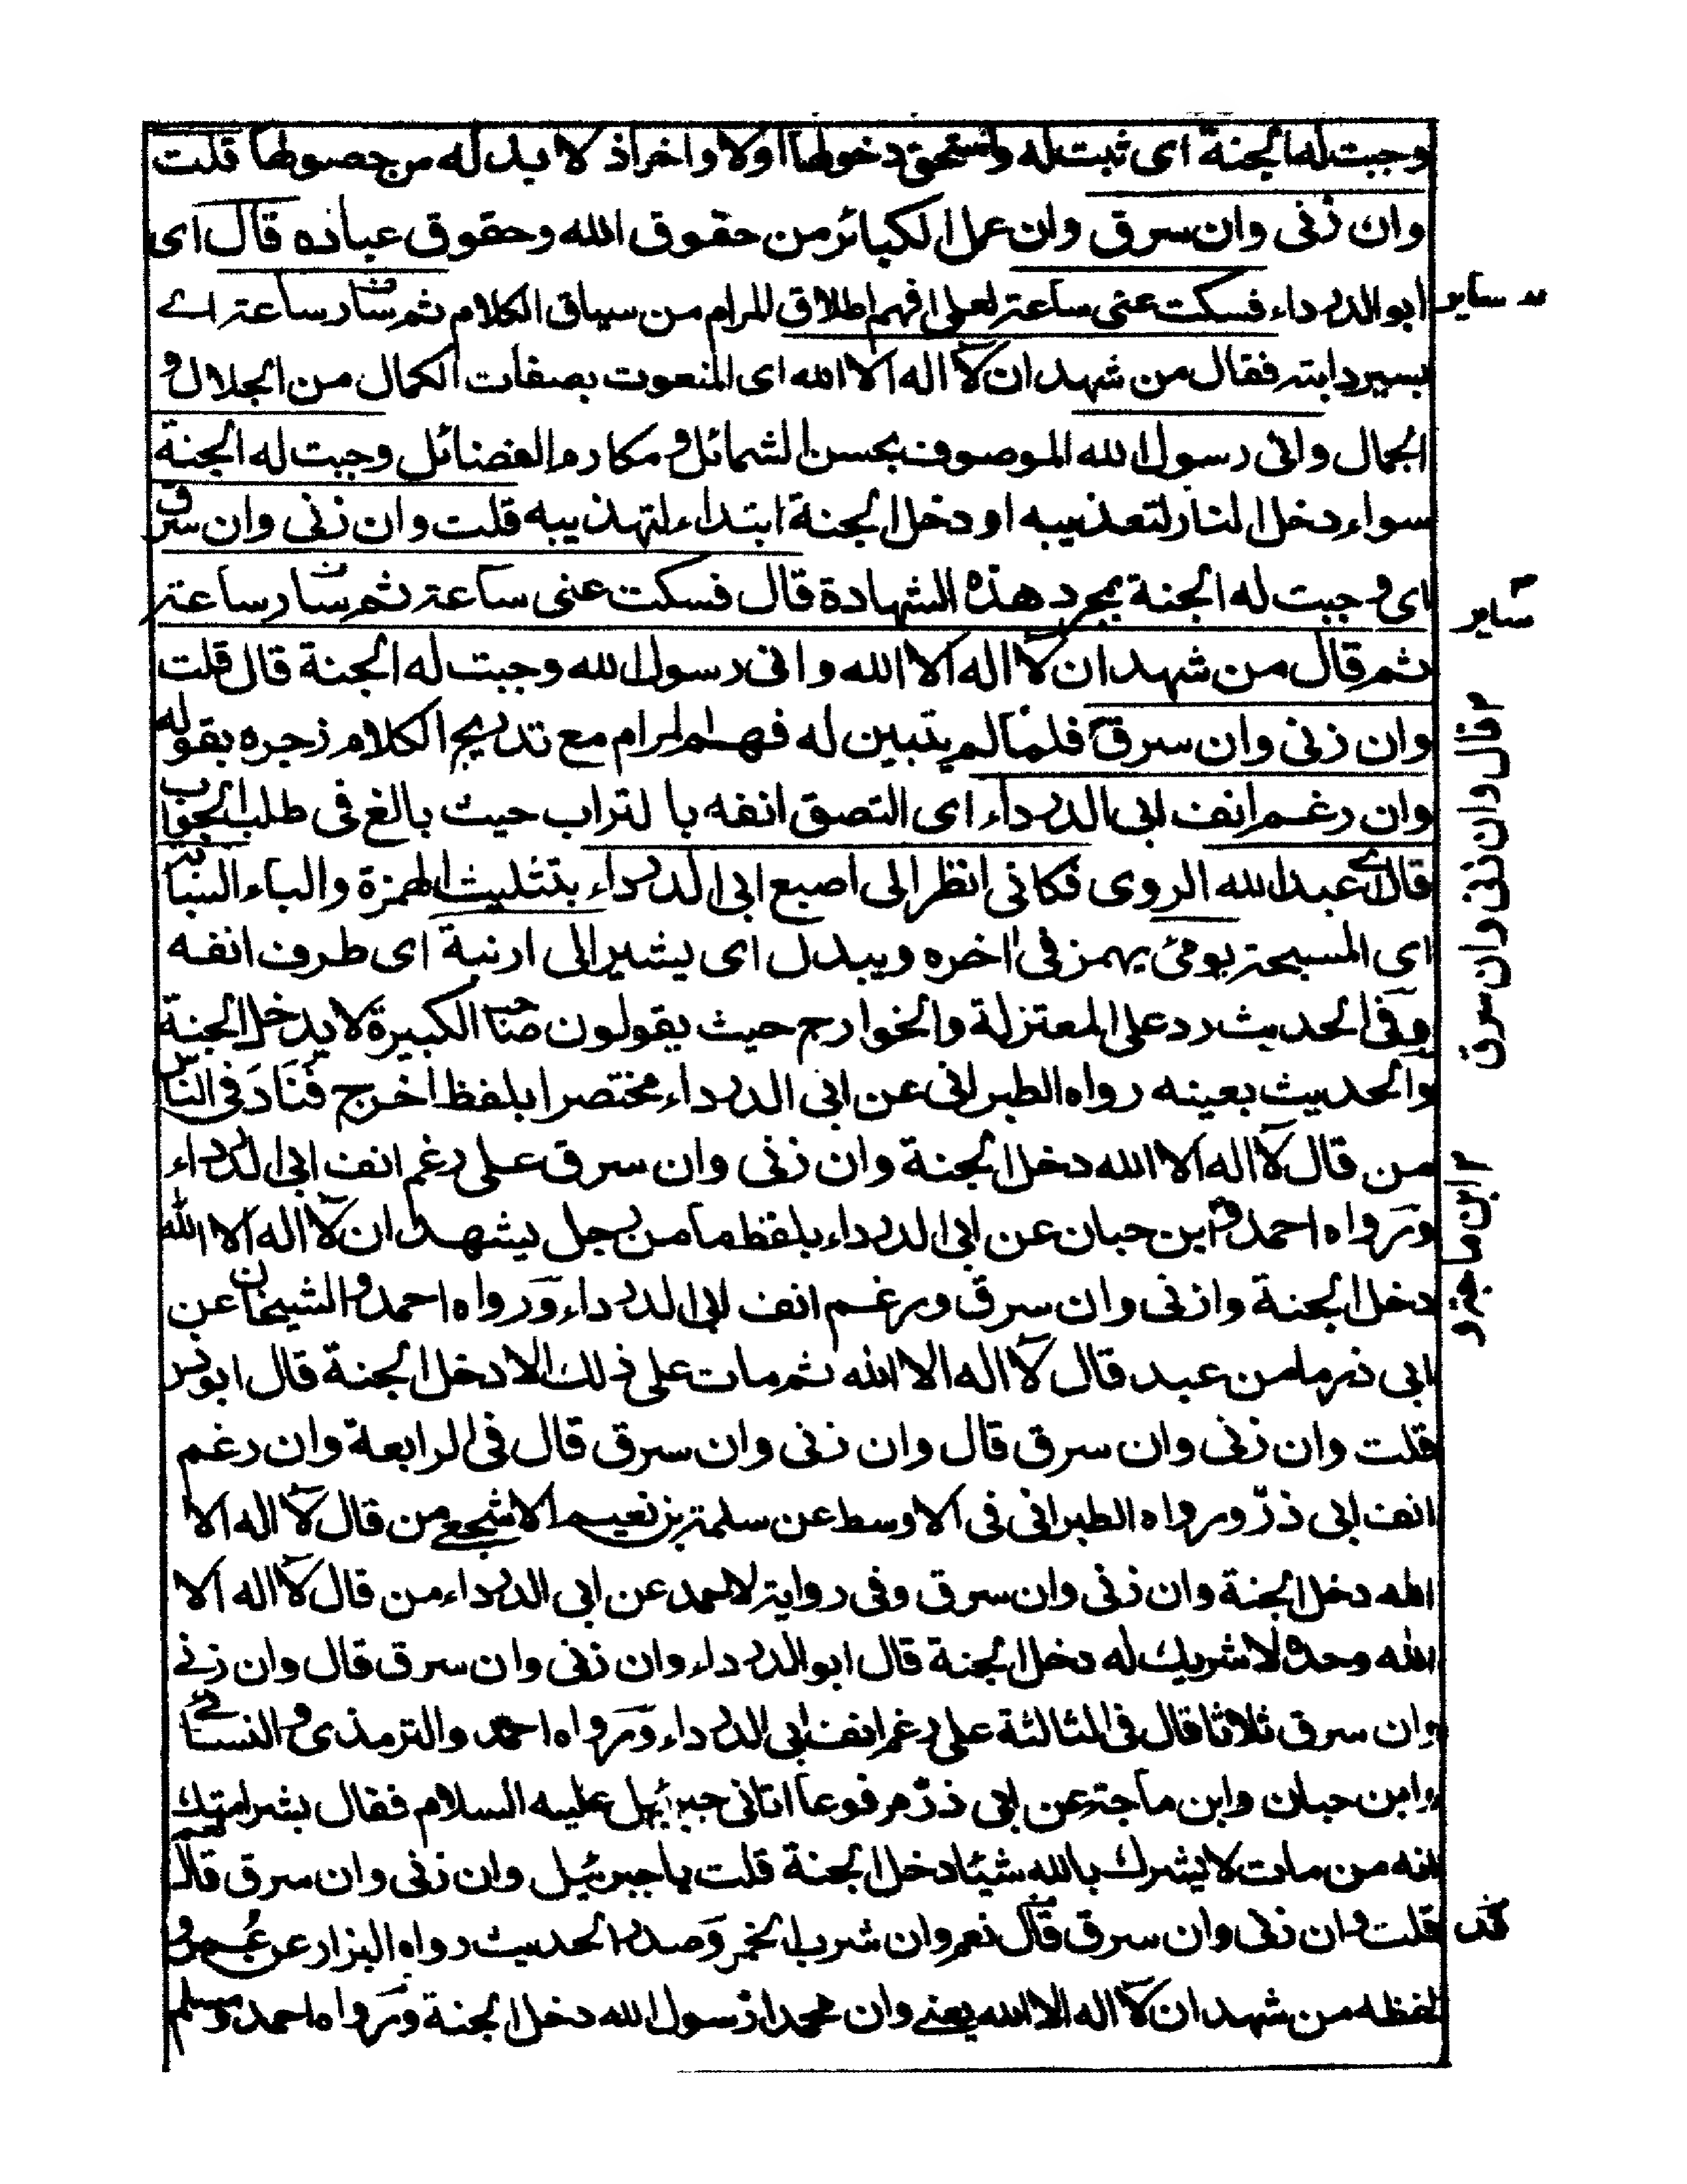 وجبت له الجنة اى ثبت له واستحق دخولها اولا واخرا ذ لا بد له من حصولها قلت
وان زنى وان سرق وان عمل الكبائر من حقوق الله وحقوق عباده قال اى
ابو الدرداء فسكت عنى ساعة لعلى افهم اطلاق المرام من سياق الكلام ثم سار ساعة اے
يسير دابته فقال من شهد ان لا اله الا الله اى المنعوت بصفات الكمال من الجلال و
الجمال وانى رسول الله الموصوف بحسن الشمائل ومكارم الفضائل وجبت له الجنة
سواء دخل النار لتعذيبه او دخل الجنة ابتداء لتهذيبه قلت وان زنى وان سرق
اى وجبت له الجنة بمجرد هذه الشهادة قال فسكت عنى ساعة ثم سار ساعة
ثم قال من شهد ان لا اله الا الله وانى رسول الله وجبت له الجنة قال قلت
وان زنى وان سرق فلما لم يتبين له فهم المرام مع تدريج الكلام زجره بقوله
وان رغم انف ابى الدرداء اى التصق انفه بالتراب حيث بالغ فى طلب الجواب
قال اے عبد الله الروى فكانى انظر الى اصبع ابى الدرداء بتثليث الهمزة والباء السبابة
اى المسبحة يومئ يهمز فى اخره ويبدل اى يشير الى ارنبة اى طرف انفه
وفى الحديث رد على المعتزلة والخوارج حيث يقولون صاحب الكبيرة لا يدخل الجنة
والحديث بعينه رواه الطبرانى عن ابى الدرداء مختصرا بلفظ اخرج فناد فى الناس
من قال لا اله الا الله دخل الجنة وان زنى وان سرق على رغم انف ابى الدرداء
ورواه احمد و ابن حبان عن ابى الدرداء بلفظ ما من رجل يشهد ان لا اله الا الله
دخل الجنة وازنى وان سرق ورغم انف ابى الدرداء ورواه احمد والشيخان عن
ابى ذر ما من عبد قال لا اله الا الله ثم مات على ذلك الا دخل الجنة قال ابو ذر
قلت وان زنى وان سرق قال وان زنى وان سرق قال فى الرابعة وان رغم
انف ابى ذر ورواه الطبرانى فى الاوسط عن سلمة بن نعيم الاشجعے من قال لا اله الا
الله دخل الجنة وان زنى وان سرق وفى رواية لاحمد عن ابى الدرداء من قال لا اله الا
الله وحده لا شريك له دخل الجنة قال ابو الدرداء وان زنى وان سرق قال وان زنے
وان سرق ثلاثا قال فى الثالثة على رغم انف ابى الدرداء ورواه احمد والترمذى والنسائے
وابن حبان وابن ماجة عن ابى ذر مرفوعا اتانى جبرئيل عليه السلام فقال بشر امتك
انه من مات لا يشرك بالله شيئا دخل الجنة قلت يا جبرئيل وان زنى وان سرق قال نعم
قلت وان زنى وان سرق قال نعم وان شرب الخمر وصدر الحديث رواه البزار عن عمر و
لفظه من شهد ان لا اله الا الله يعنے وان محمدا رسول الله دخل الجنة ورواه احمد ومسلم
ساير
ساير
قال وان زنى وان سرق
ابن ماجة و